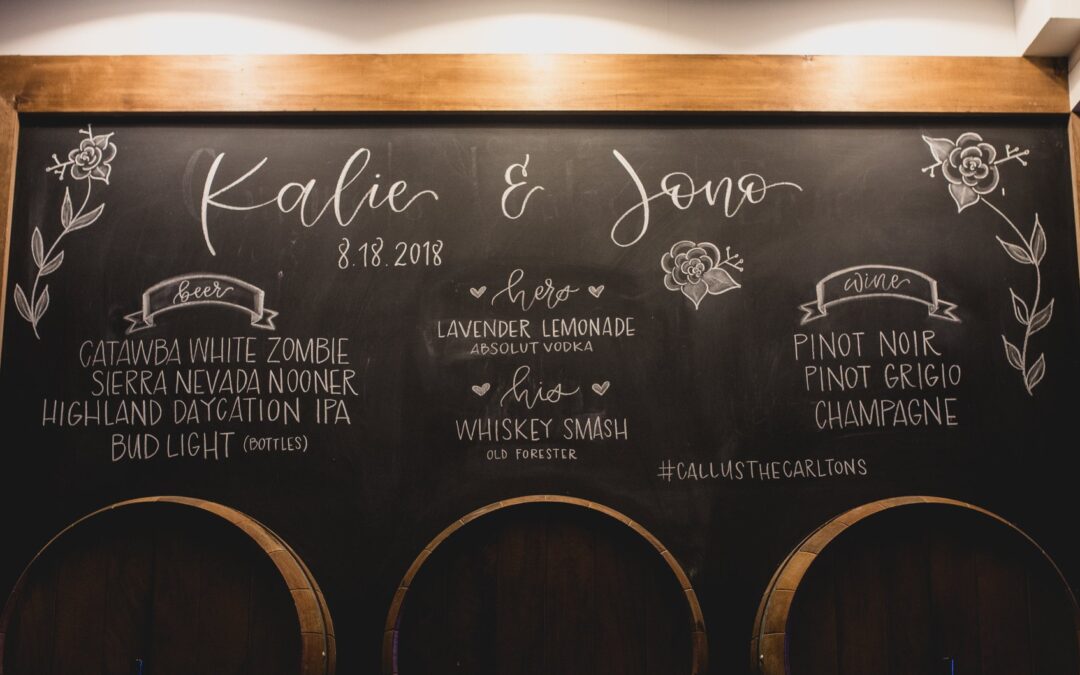 Kalie & Jono
8.18.2018
beer
CATAWBA WHITE ZOMBIE
SIERRA NEVADA NOONER
HIGHLAND DAYCATION IPA
BUD LIGHT (BOTTLES)
hers
LAVENDER LEMONADE
ABSOLUT VODKA
his
WHISKEY SMASH
OLD FORESTER
wine
PINOT NOIR
PINOT GRIGIO
CHAMPAGNE
#CALLUSTHECARLTONS